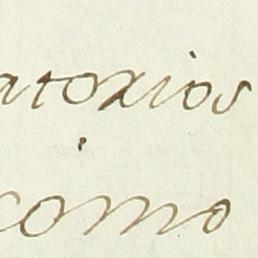 atorios
como